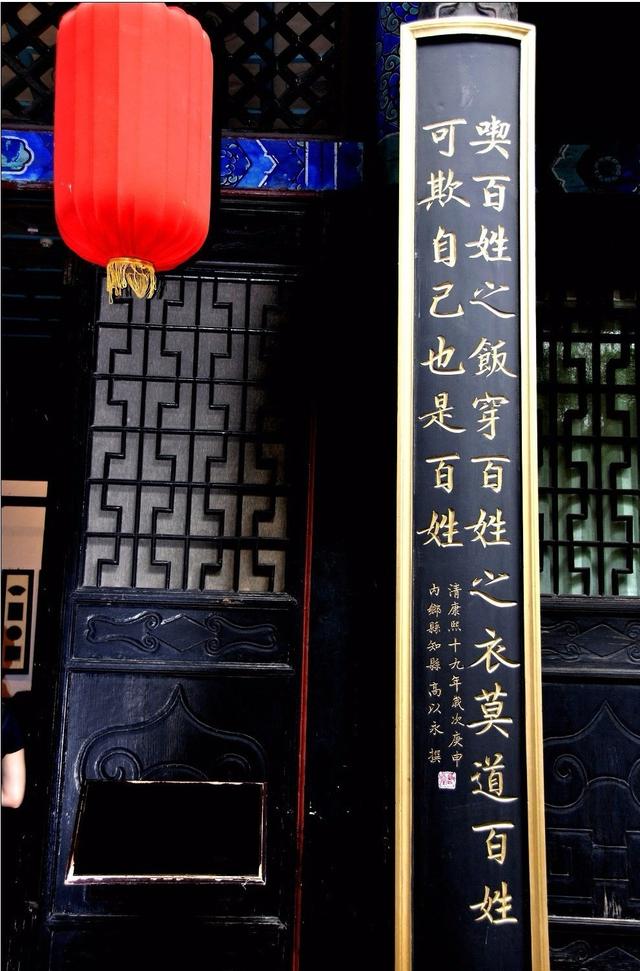 喫百姓之飯穿百姓之衣莫道百姓
可欺自己也是百姓
清康熙十九年歲次庚申
内鄉縣知縣高以永撰